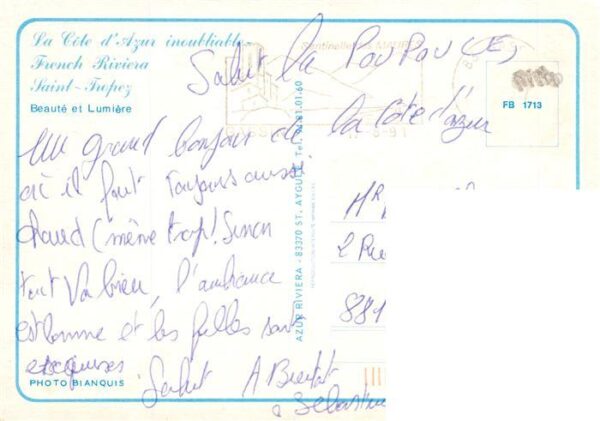 La Côte d'Azur inoubliable
French Riviera
Saint-Tropez
Beauté et Lumière
Sentinelle des Maures
FB 1713
Salut la POUPOU(E)
Un grand bonjour de la Côte d'azur
où il fait toujours aussi
chaud (même trop! Sinon
tout va bien, l'ambiance
est bonne et les filles sont
exquises
Salut A Bientôt
Sébastien
AZUR RIVIERA - 83370 ST. AYGULF Tel. 94.81.01.60
Mr
2 Rue
881
PHOTO BIANQUIS